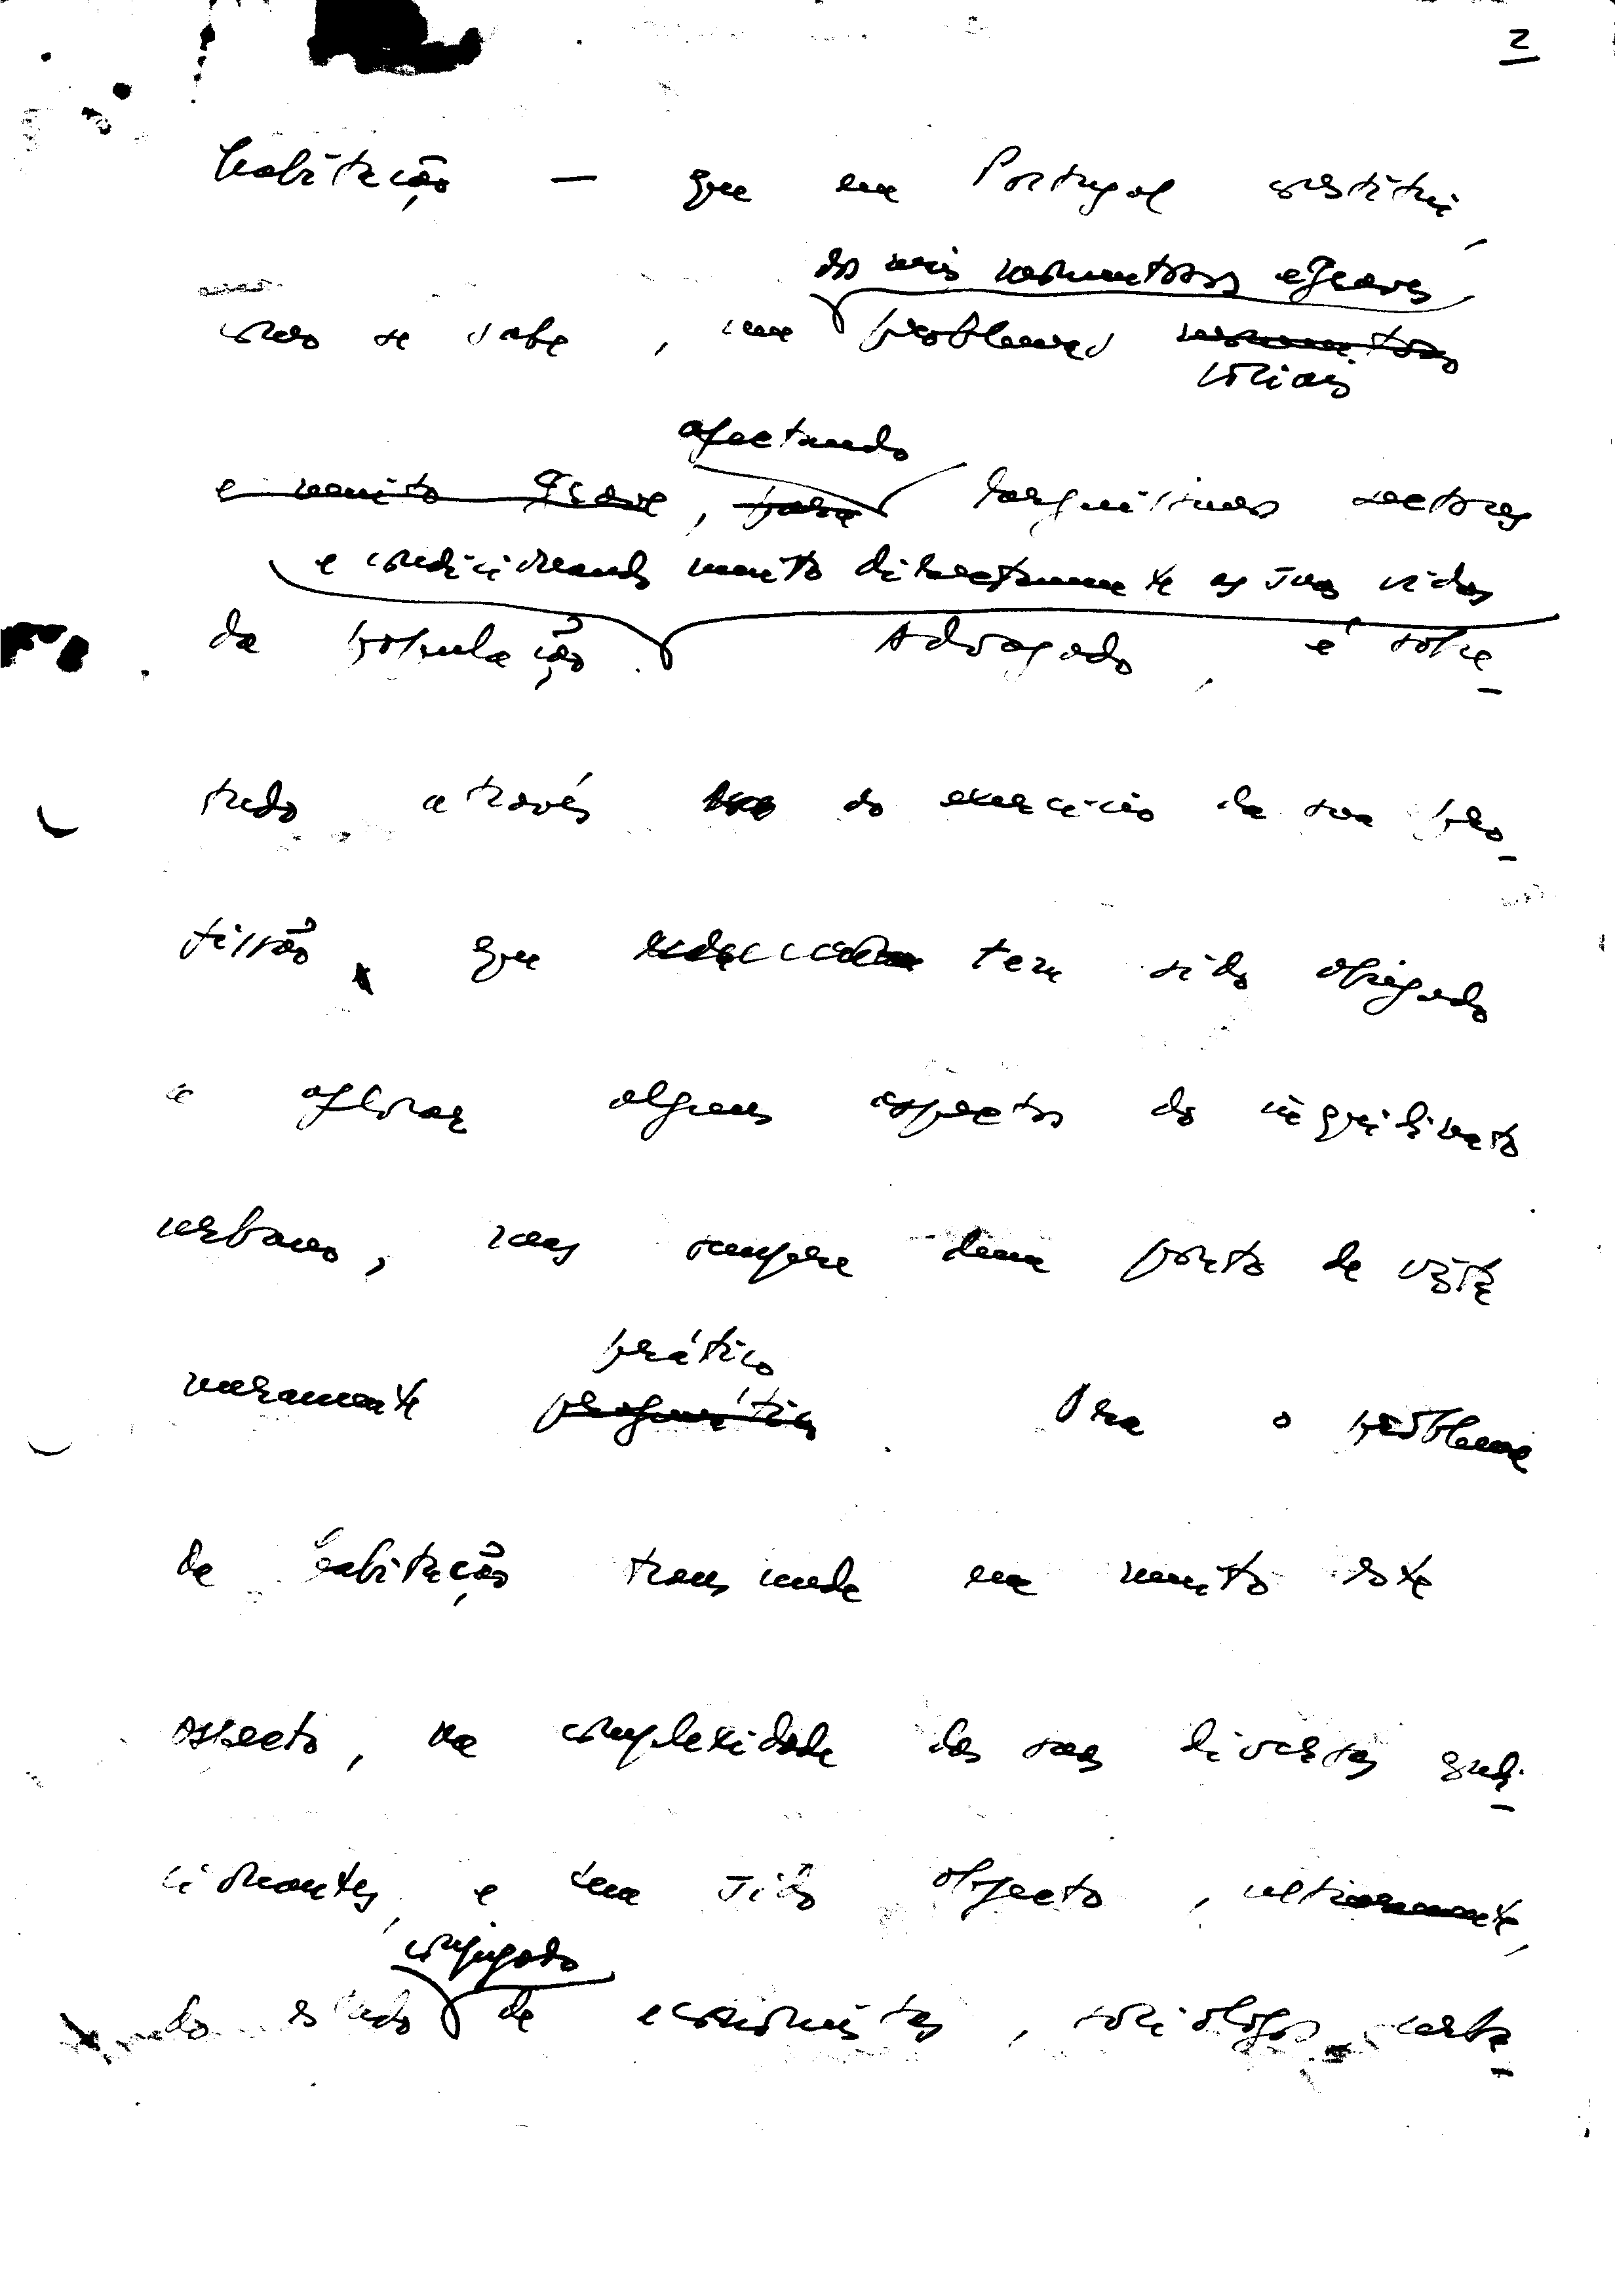 2
habitação — que em Portugal constitui,
dos mais momentosos e graves
como se sabe, um problemas momentoso
sociais
afectando
e muito grave, para larguíssimos sectores
e condicionando muito directamente as suas vidas
da população. Advogado, é sobre-
tudo através do exercício da sua pro-
fissão, que tem sido obrigado
a aflorar alguns aspectos do inquilinato
urbano, mas sempre dum ponto de vista
prático
meramente pragmático. Ora o problema
da habitação transcende em muito este
aspecto, na complexidade das suas diversas condi-
cionantes, e tem sido objecto, ultimamente,
conjugado
do estudo de economistas, sociólogos, urba-